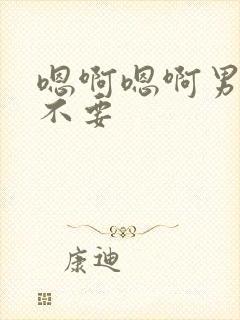 嗯啊嗯啊男
不要
康迪